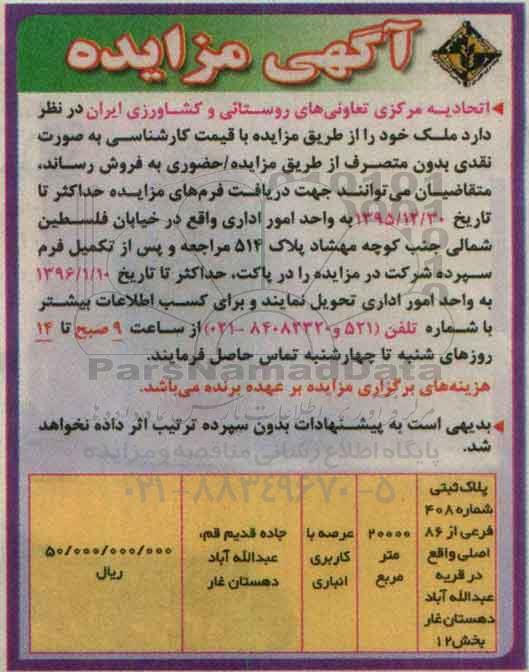 آگهی مزایده
اتحادیه مرکزی تعاونی‌های روستائی و کشاورزی ایران در نظر
دارد ملک خود را از طریق مزایده با قیمت کارشناسی به صورت
نقدی بدون متصرف از طریق مزایده/حضوری به فروش رساند،
متقاضیان می‌توانند جهت دریافت فرم‌های مزایده حداکثر تا
تاریخ ۱۳۹۵/۱۲/۳۰ به واحد امور اداری واقع در خیابان فلسطین
شمالی جنب کوچه مهشاد پلاک ۵۱۴ مراجعه و پس از تکمیل فرم
سپرده شرکت در مزایده را در پاکت، حداکثر تا تاریخ ۱۳۹۶/۱/۱۰
به واحد امور اداری تحویل نمایند و برای کسب اطلاعات بیشتر
با شماره تلفن (۵۲۱ و ۸۴۰۸۲۳۲۰ -۰۲۱) از ساعت ۹ صبح تا ۱۴
روزهای شنبه تا چهارشنبه تماس حاصل فرمایند.
ParsNamadData
هزینه‌های برگزاری مزایده بر عهده برنده می‌باشد.
بدیهی است به پیشنهادات بدون سپرده ترتیب اثر داده نخواهد
شد.
پایگاه اطلاع رسانی مناقصه و مزایده
۰۲۱-۸۸۳۴۹۶۷۰-۵
پلاک ثبتی
شماره ۴۰۸
فرعی از ۸۶
اصلی واقع
در قریه
عبدالله آباد
دهستان غار
بخش ۱۲
۲۰۰۰۰
متر
مربع
عرصه با
کاربری
انباری
جاده قدیم قم،
عبدالله آباد
دهستان غار
۵۰/۰۰۰/۰۰۰/۰۰۰
ریال